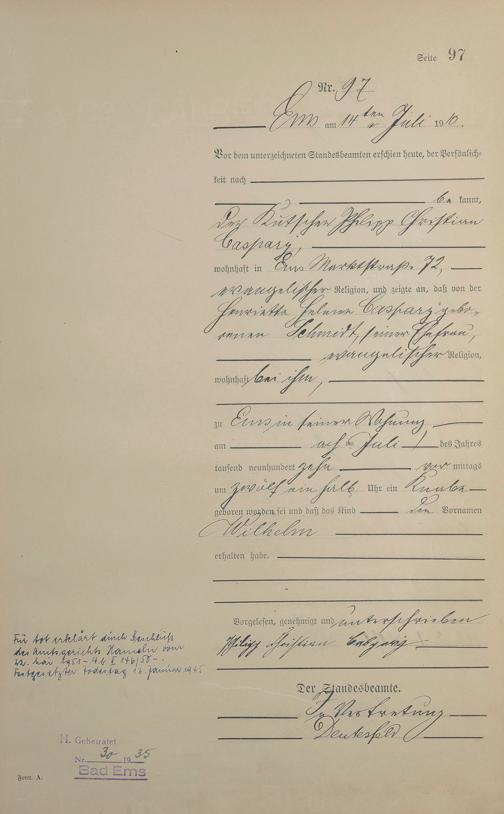 Seite 97
Nr. 97
Ems am 14ten Juli 1910.
Vor dem unterzeichneten Standesbeamten erschien heute, der Persönlich-
keit nach
be kannt,
der Kutscher Philipp Christian
Caspary,
wohnhaft in Ems Marktstraße 72,
evangelischer Religion, und zeigte an, daß von der
Henriette Helene Caspary gebo-
renen Schmidt, seiner Ehefrau,
evangelischer Religion,
wohnhaft bei ihm,
zu Ems in seiner Wohnung
am Juli des Jahres
tausend neunhundert zehn vor mittags
um zwölf ein halb Uhr ein Knabe
geboren worden sei und daß das Kind den Vornamen
Wilhelm
erhalten habe.
Vorgelesen, genehmigt und unterschrieben
Philipp Christian Caspary
Der Standesbeamte.
In Vertretung
Für tot erklärt durch Beschluß
des Amtsgerichts Hameln vom
22. Mai 1951
Festgesetzter Todestag Januar 1945
H. Geheiratet
Nr. 30 1935
Bad Ems
Form. A.